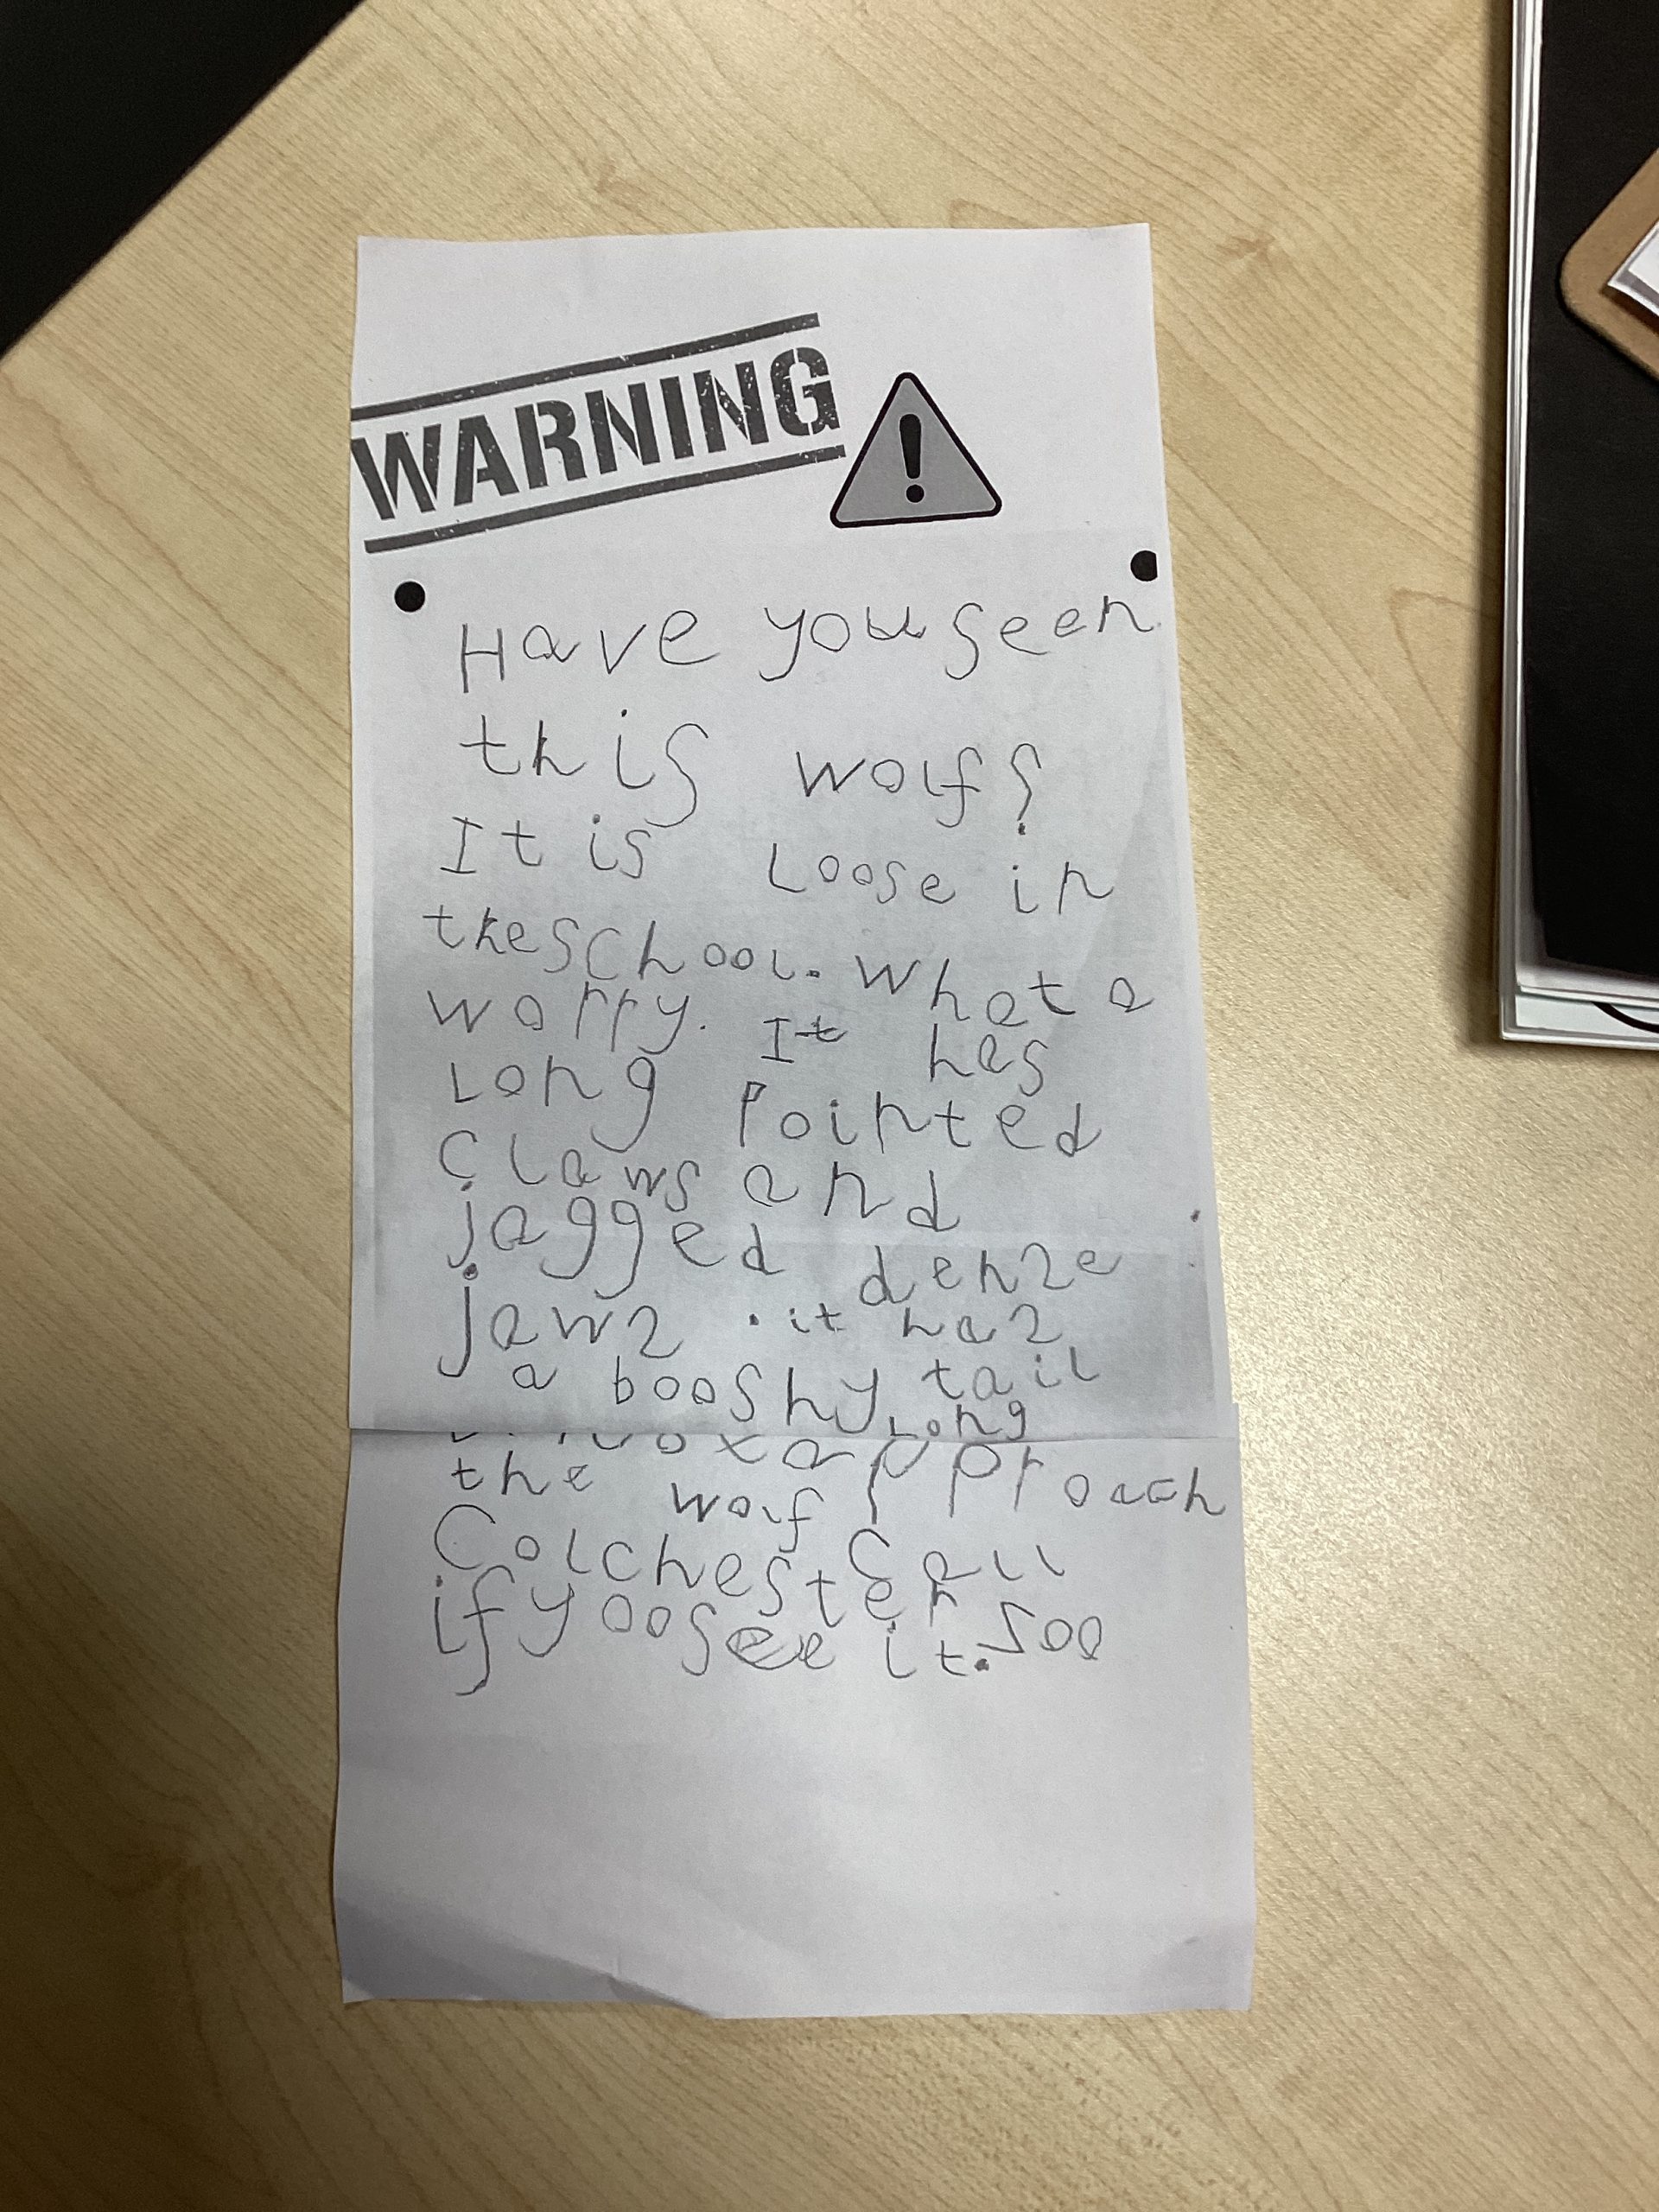 WARNING
Have you seen
this wolf?
It is Loose in
the school. What a
worry. It has
Long Pointed
claws and
jagged denze
jawz . it haz
a booshy tail
Long
approach
the wolf
Call
Colchester
Zoo
if yoo see it.